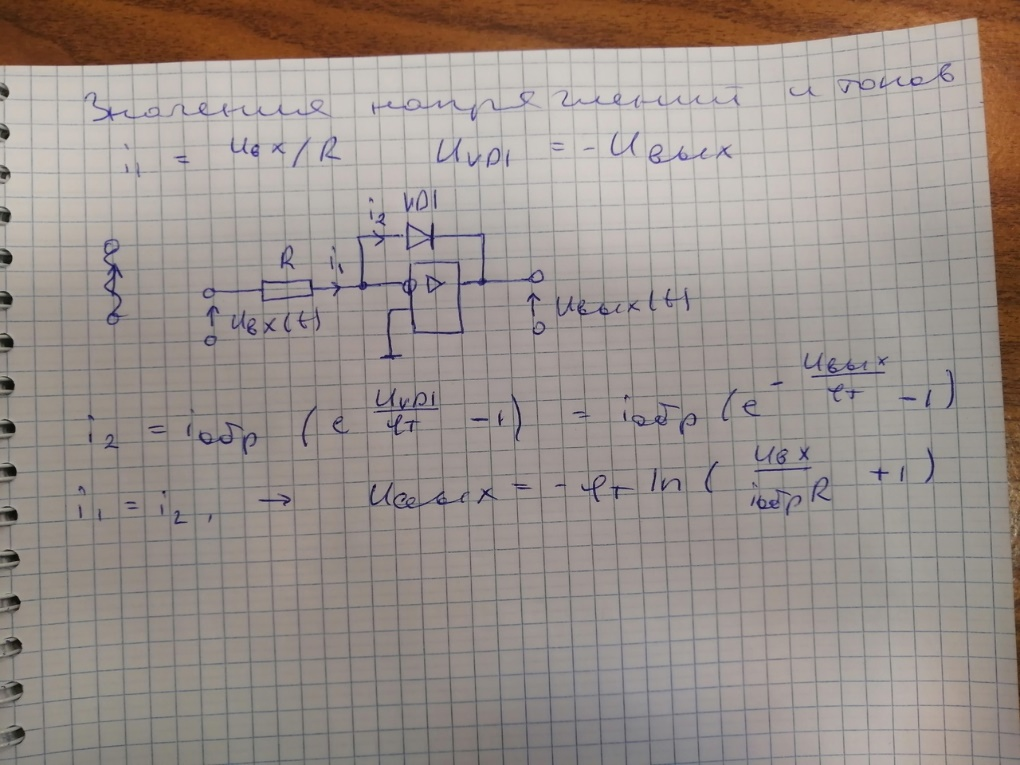 Значения напряжений и токов
i₁ = Uвх/R   U_VD1 = -Uвых
i₂ VD1
R i₁
Uвх(t) Uвых(t)
i₂ = iобр (e^(U_VD1/φт) -1) = iобр (e^(-Uвых/φт) -1)
i₁ = i₂, → Uвых = -φт ln (Uвх/(iобрR) +1)